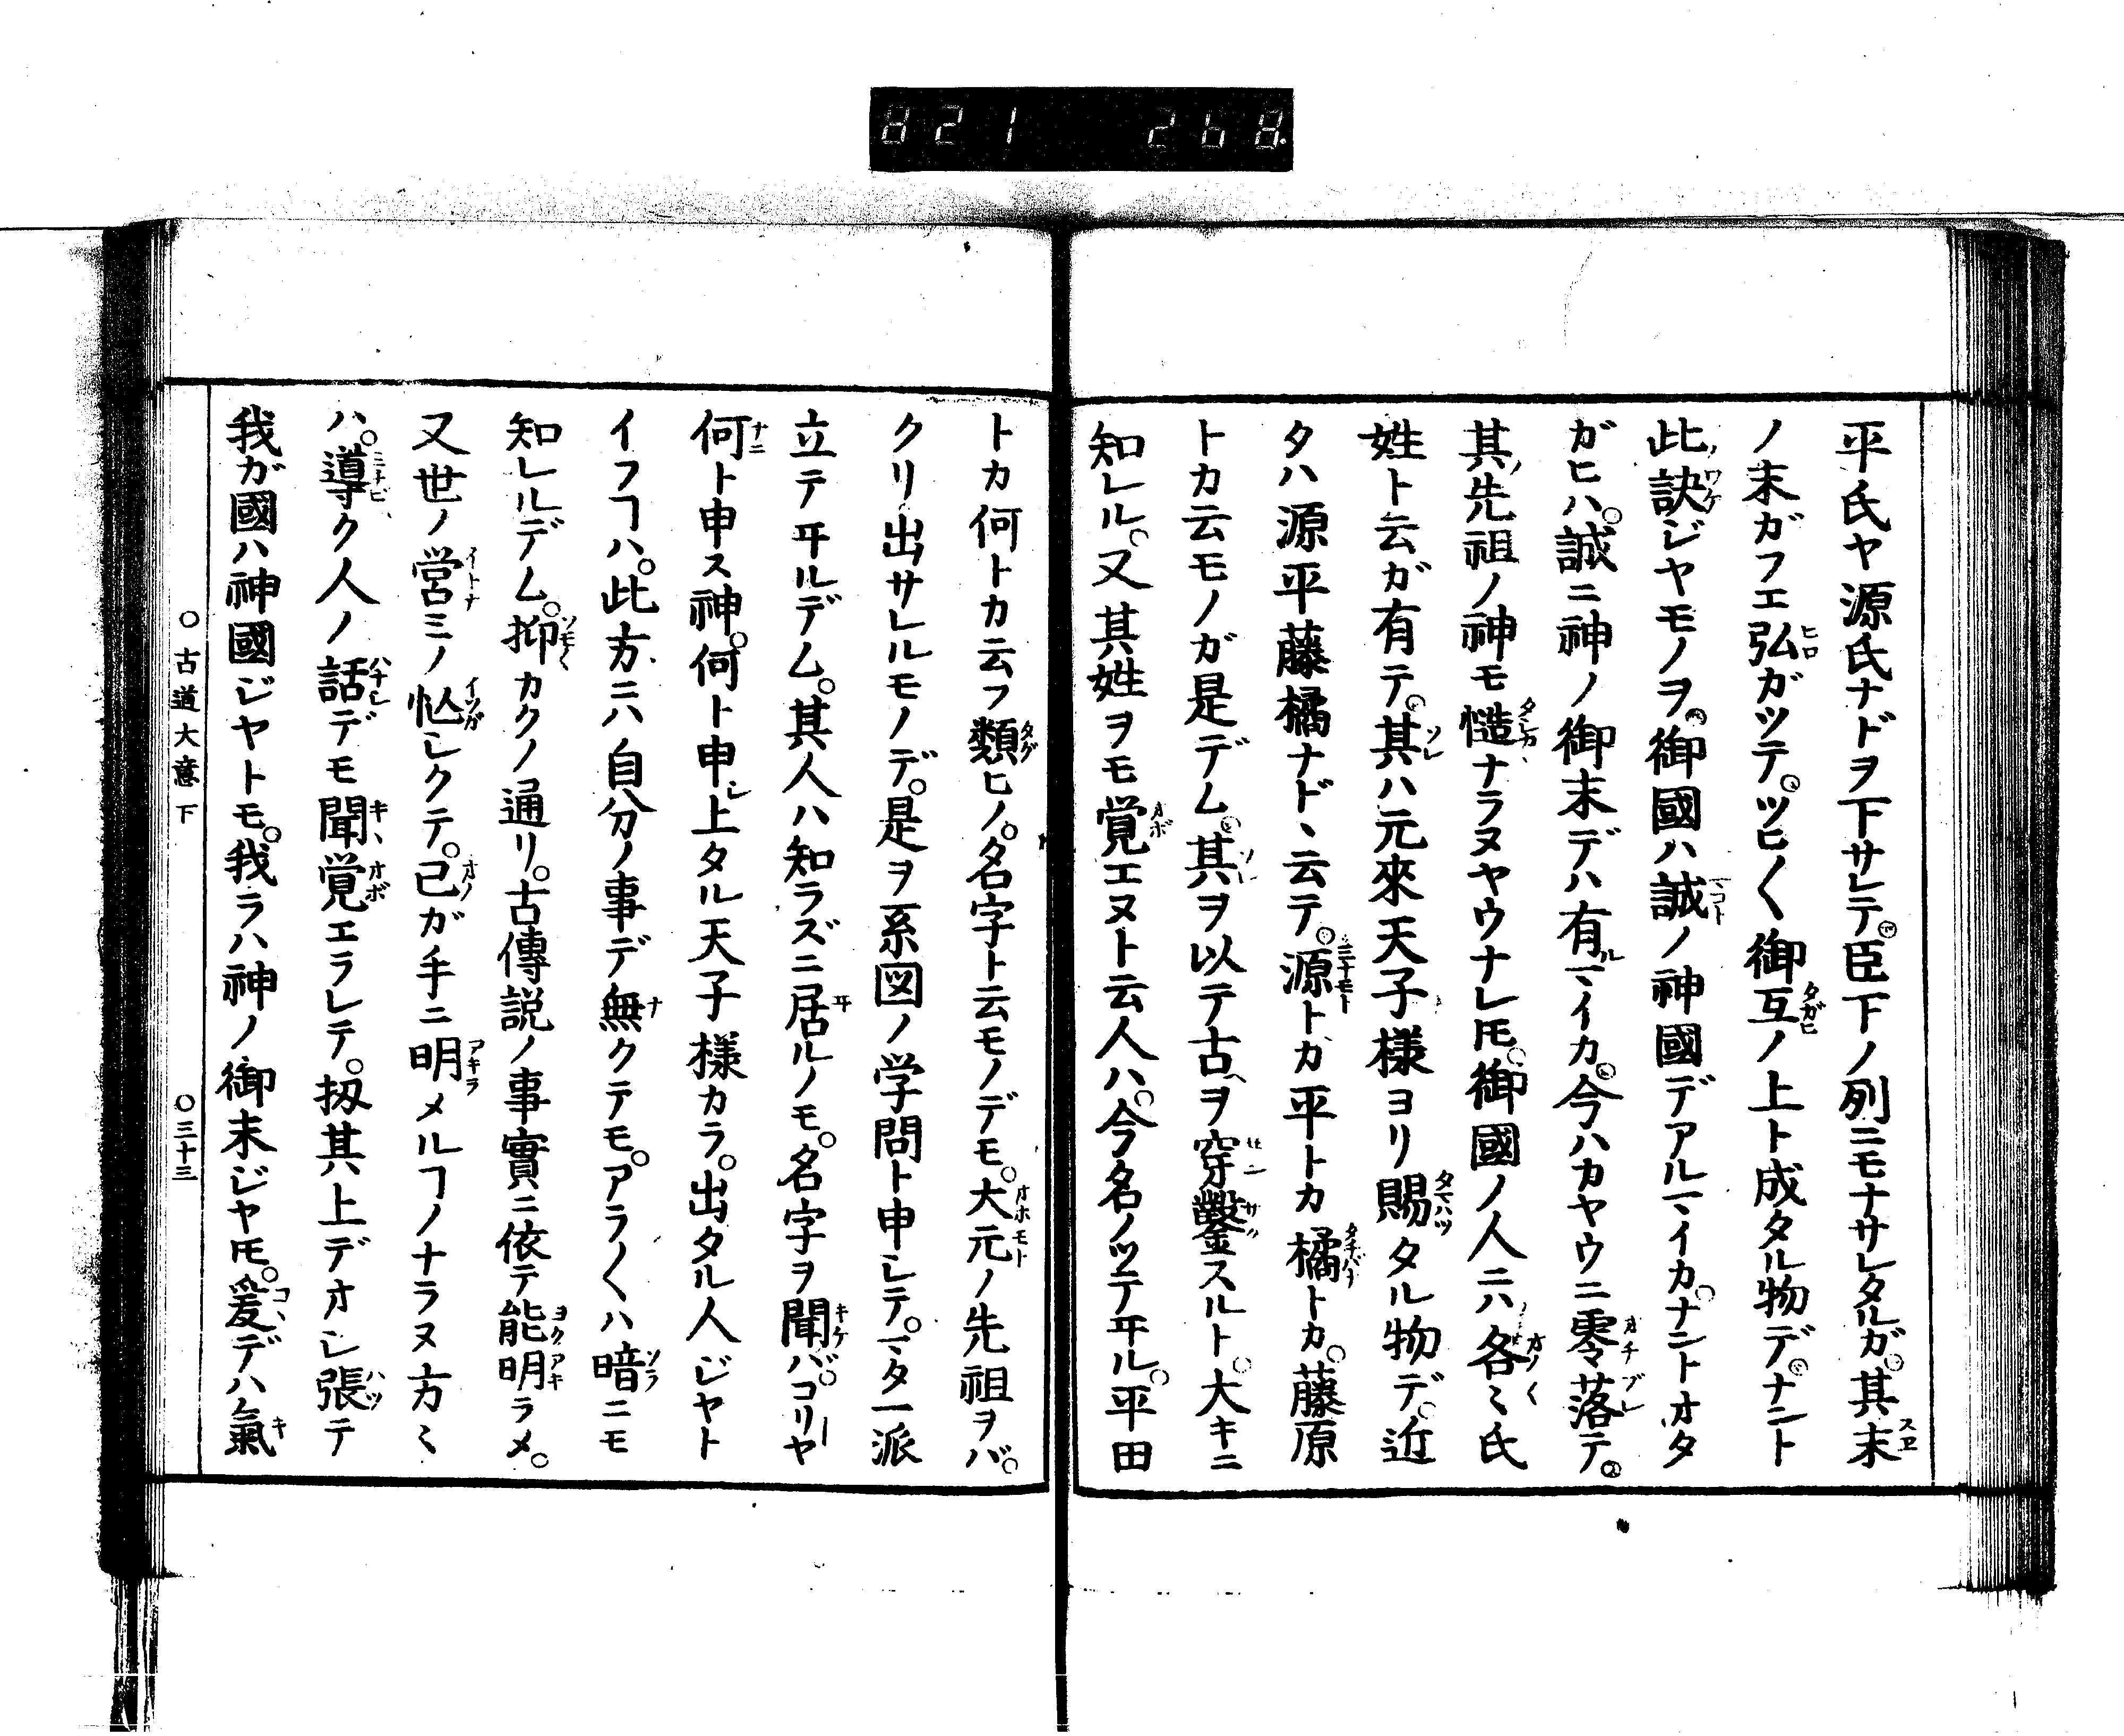 821 268
平氏ヤ源氏ナドヲ下サレテ。臣下ノ列ニモナサレタルガ。其末
ノ末ガフエ弘ガツテ。ツヒ〱御互ノ上ト成タル物デ。ナント
此訣ジヤモノヲ。御國ハ誠ノ神國デアルマイカ。ナントオタ
ガヒハ。誠ニ神ノ御末デハ有マイカ。今ハカヤウニ零落テ。
其先祖ノ神モ慥ナラヌヤウナレ𪜈。御國ノ人ニハ各〻氏
姓ト云ガ有テ。其ハ元來天子様ヨリ賜タル物デ。近
タハ源平藤橘ナドヽ云テ。源トカ平トカ橘トカ。藤原
トカ云モノガ是デム。其ヲ以テ古ヘヲ穿鑿スルト。大キニ
知レル。又其姓ヲモ覚エヌト云人ハ。今名ノツテ𛄚ル。平田
トカ何トカ云フ類ヒノ。名字ト云モノデモ。大元ノ先祖ヲバ。
クリ出サレルモノデ。是ヲ系図ノ学問ト申シテ。マタ一派
立テヰルデム。其人ハ知ラズニ居ルノモ。名字ヲ聞バ。コリヤ
何ト申ス神。何ト申シ上タル天子様カラ。出タル人ジヤト
イフヿハ。此方ニハ自分ノ事デ無クテモ。アラ〱ハ暗ニモ
知レルデム。抑カクノ通リ。古傳説ノ事實ニ依テ能明ラメ。
又世ノ営ミノ忙シクテ。己ガ手ニ明メルヿノナラヌ方〻
ハ。導ク人ノ話デモ聞覚エラレテ。扨其上デオシ張テ
我ガ國ハ神國ジヤトモ。我ラハ神ノ御末ジヤ𪜈。爰デハ氣
〇古道大意下 〇三十三